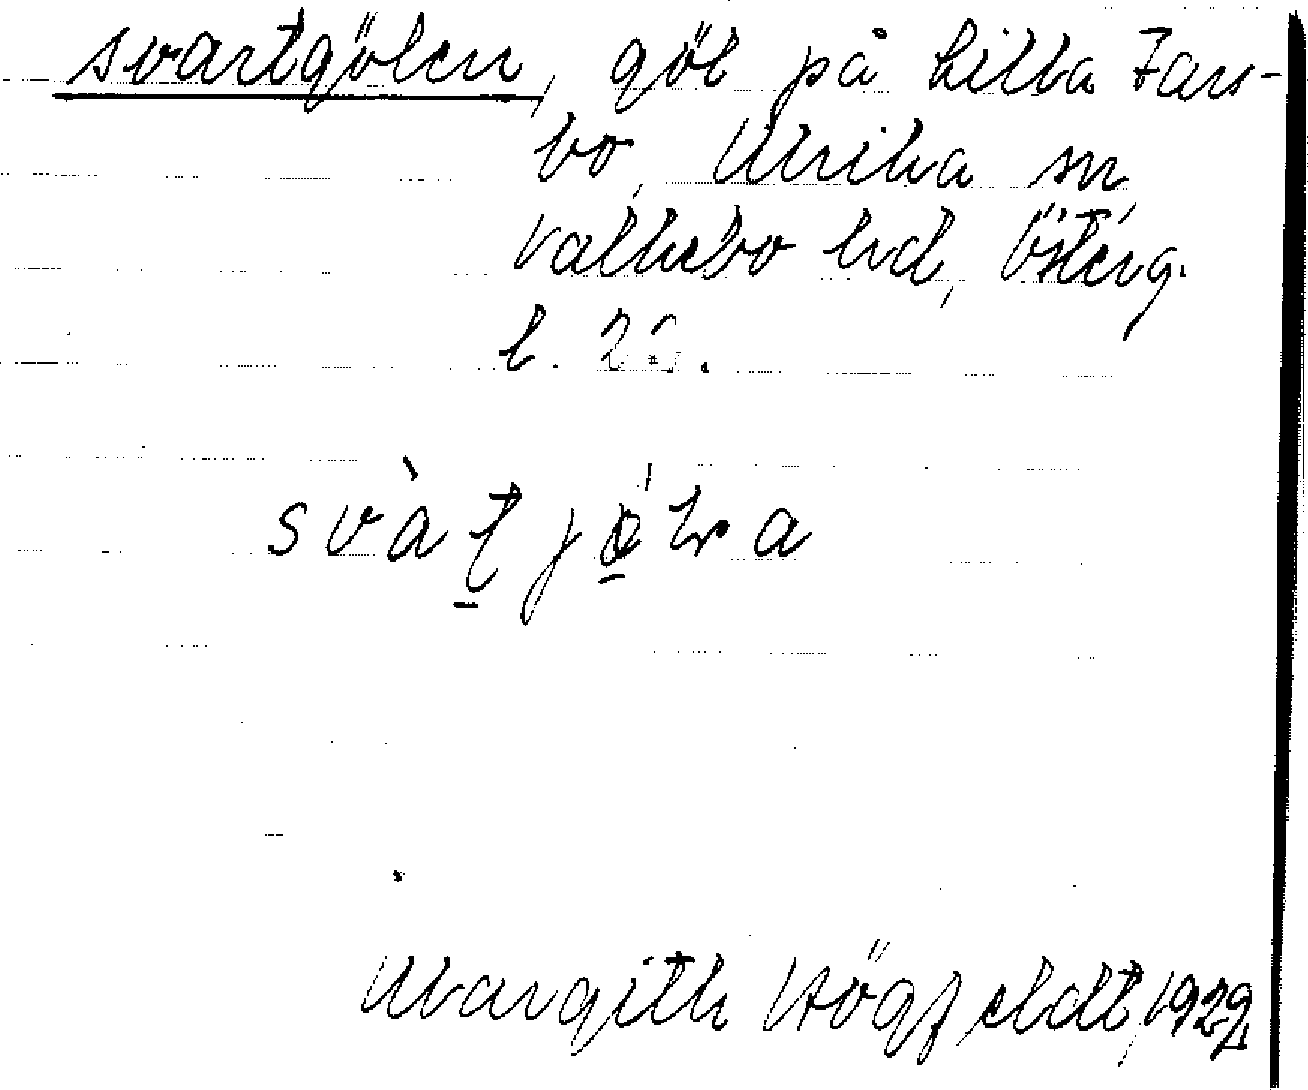 svartgölen, göl på Lilla Fars-
bo, Ulrika sn
Valkebo hd, Österg.
l.
svàtjǿlra
Margith Högfeldt, 1929